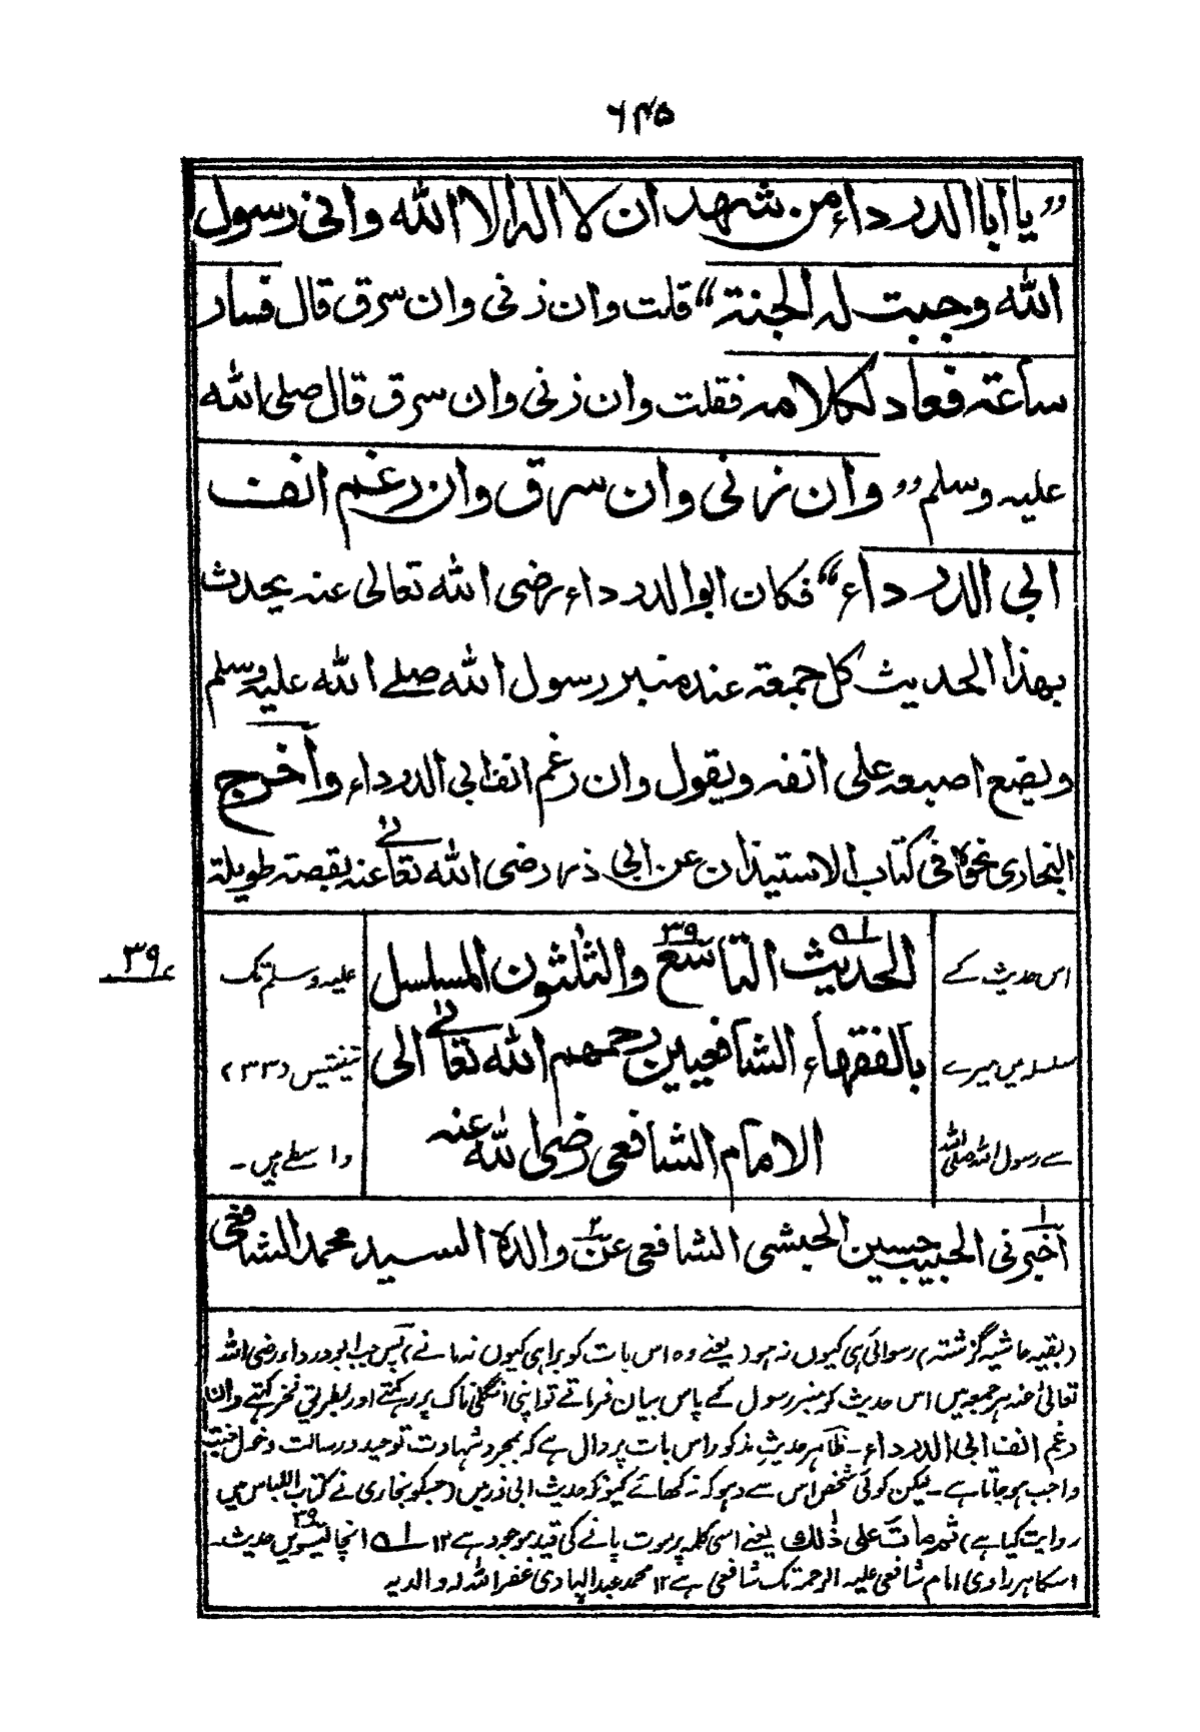 ۶۴۵
”یا ابا الدرداء من شہد ان لا الہ الا اللہ وانی رسول
اللہ وجبت لہ الجنة“ قلت وان زنی وان سرق قال فسار
ساعتہ فعاد لکلامہ فقلت وان زنی وان سرق قال صلی اللہ
علیہ وسلم ”وان زنی وان سرق وان رغم انف
ابی الدرداء“ فکان ابو الدرداء رضی اللہ تعالی عنہ یحدث
بھذا الحدیث کل جمعة عند منبر رسول اللہ صلے اللہ علیہ وسلم
ویضع اصبعہ علی انفہ ویقول وان رغم انف ابی الدرداء واخرج
البخاری نحوہ فی کتاب الاستیذان عن ابی ذر رضی اللہ تعالیٰ عنہ بقصة طویلة
۳۹
الحدیث التاسع والثلثون المسلسل
بالفقہاء الشافعیین رحمہم اللہ تعالیٰ الی
الامام الشافعی رضی اللہ عنہ
اس حدیث کے
سلسلہ میں میرے
سے رسول اللہ صلی اللہ
علیہ وسلم تک
تینتیس (۳۳)
واسطے ہیں۔
اخبرنی الحبیب حسین الحبشی الشافعی عن والدہ السید محمد الشافعی
(بقیہ حاشیہ گزشتہ) رسوائی ہی کیوں نہ ہو (یعنے وہ اس بات کو برا ہی کیوں نہ مانے) پس جب ابو درداء رضی اللہ
تعالیٰ عنہ ہر جمعہ میں اس حدیث کو منبر رسول کے پاس بیان فرماتے تو اپنی انگلی ناک پر رکھتے اور بطریق فخر کہتے وان
رغم انف ابی الدرداء۔ ظاہر حدیثِ مذکور اس بات پر دال ہے کہ بمجرد شہادت توحید و رسالت دخول جنت
واجب ہو جاتا ہے۔ لیکن کوئی شخص اس سے دہوکہ نہ کھائے کیونکہ حدیث ابی ذر میں (جسکو بخاری نے کتاب اللباس میں
روایت کیا ہے) ثم مات علی ذٰلك یعنے اسی کلمہ پر موت پانے کی قید موجود ہے ۱۲ انچالیسویں حدیث۔
اسکا ہر راوی امام شافعی علیہ الرحمۃ تک شافعی ہے ۱۲ محمد عبد الہادی غفر اللہ لہ والدیہ